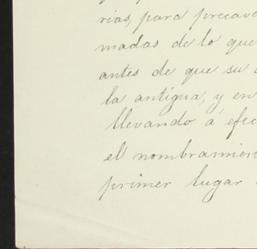 rias, para precave
madas de lo que
antes de que su
la antigua, y en
llevando á efec
el nombramien
primer lugar